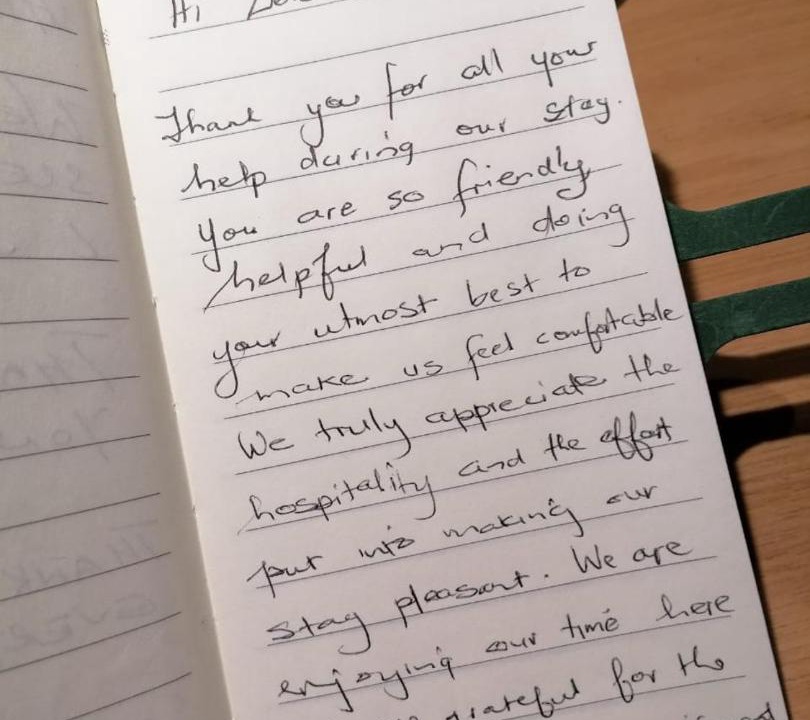 Hi
Thank you for all your
help during our stay.
You are so friendly
helpful and doing
your utmost best to
make us feel comfortable
We truly appreciate the
hospitality and the effort
put into making our
stay pleasant. We are
enjoying our time here
grateful for the